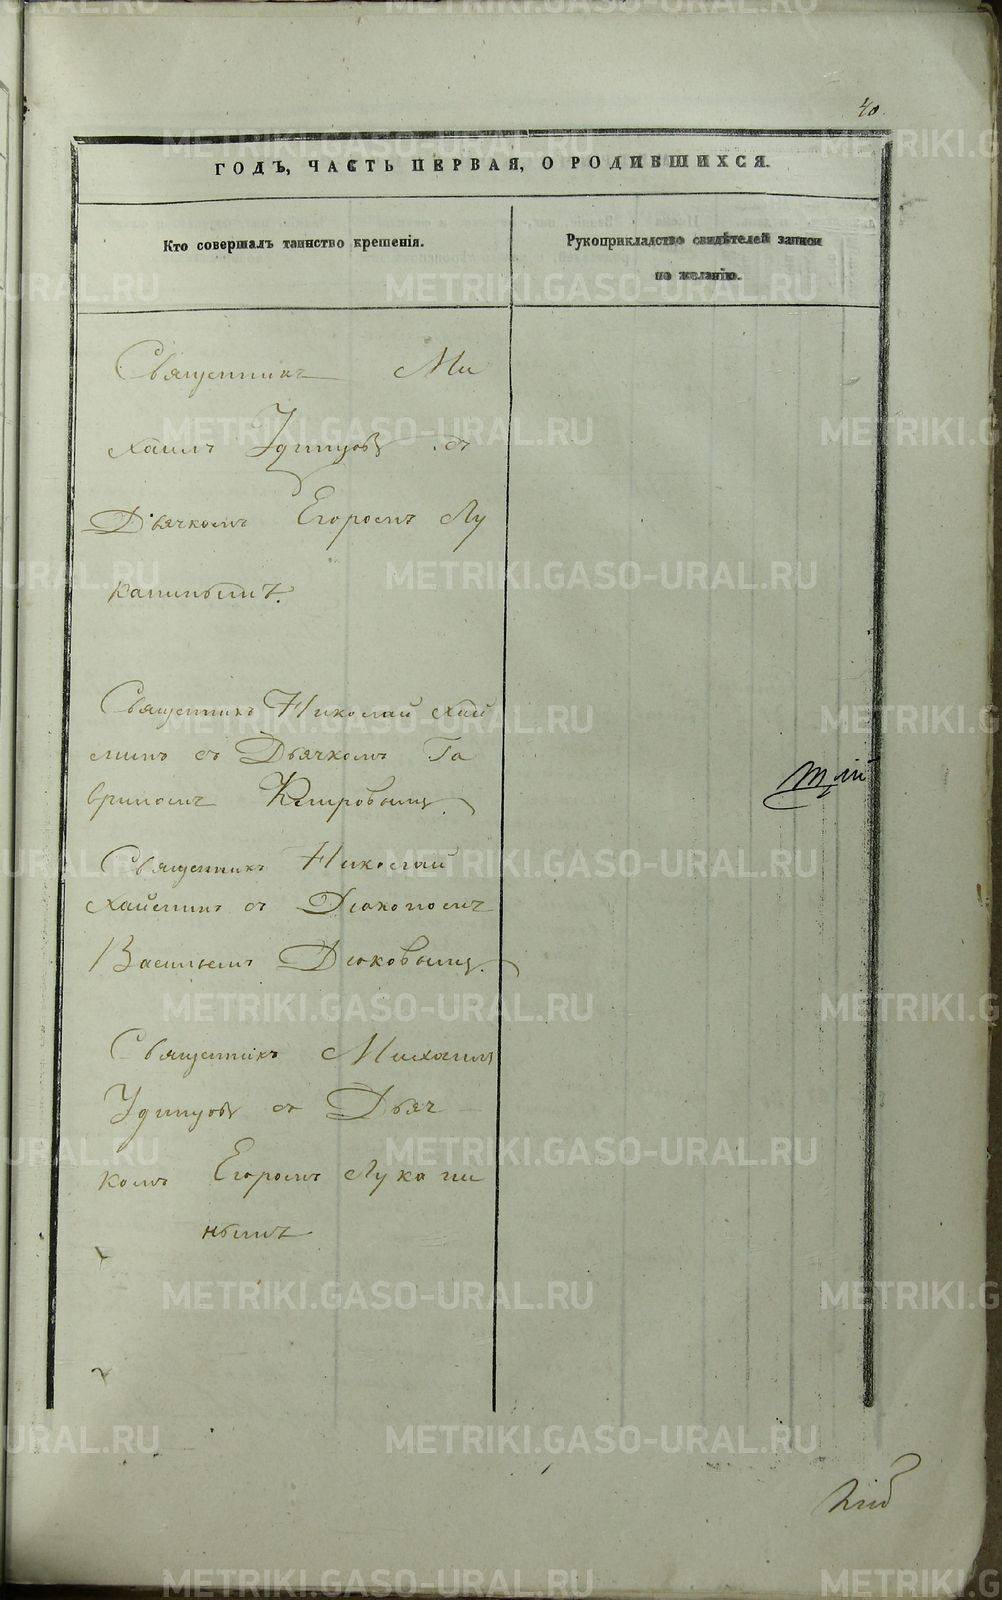 40.
ГОДЪ, ЧАСТЬ ПЕРВАЯ, О РОДИВШИХСЯ.
Кто совершалъ таинство крещенія.
Рукоприкладство свидѣтелей записи
по желанію.
Священникъ Ми
хаилъ Удинцовъ съ
Дьячкомъ Егоромъ Лу
канинымъ.
Священникъ Николай Хай
минъ съ Дьячкомъ Га
вриломъ
Священникъ Николай
Хайминъ съ Діакономъ
Васильемъ Дюковымъ.
Священникъ Михаилъ
Удинцовъ съ Дьяч
комъ Егоромъ Лукани
нымъ
METRIKI.GASO-URAL.RU